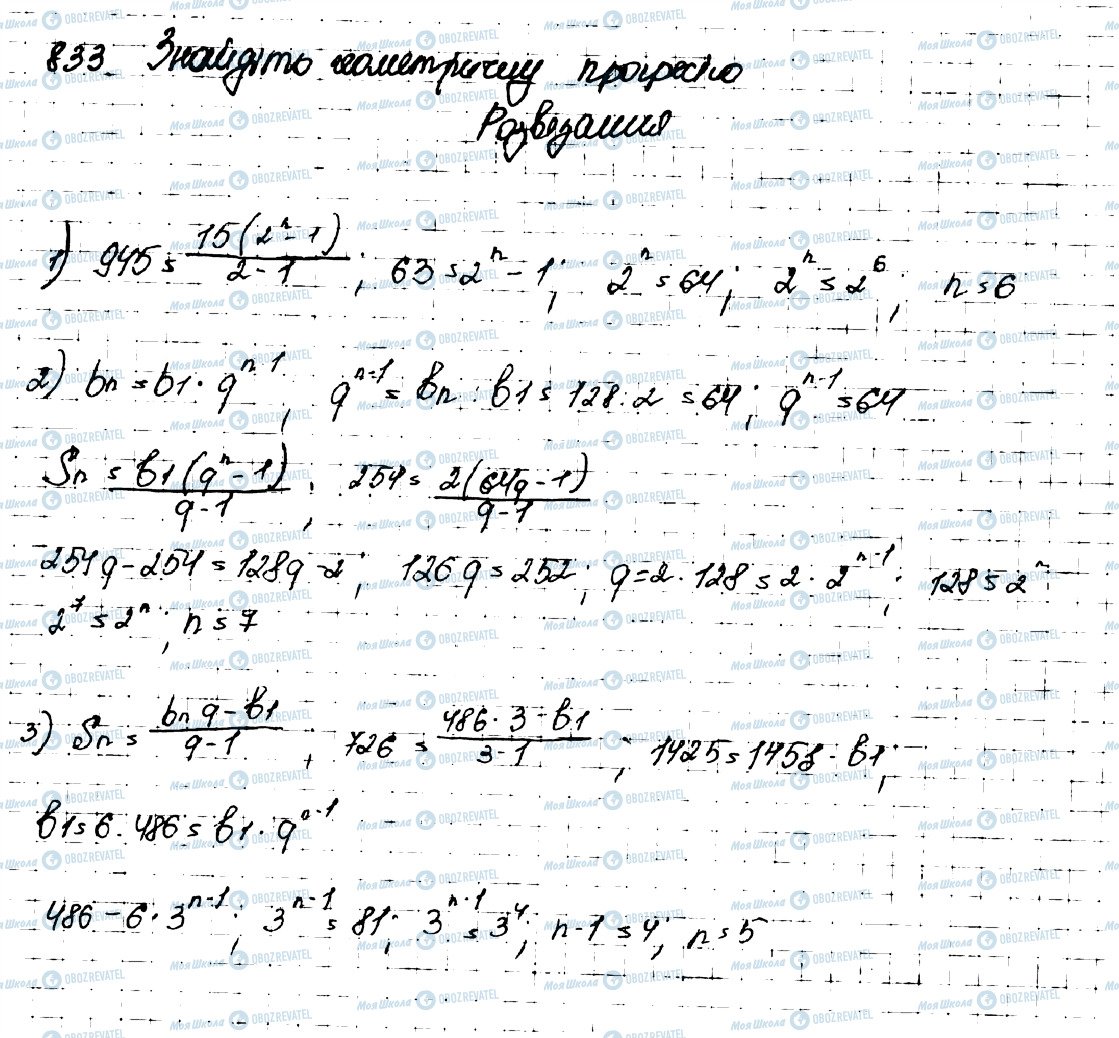 833 Знайдіть геометричну прогресію
Розвязання
1) 945 = 15(2^n - 1) / 2 - 1 ; 63 = 2^n - 1 ; 2^n = 64 ; 2^n = 2^6 ; n = 6
2) bn = b1 · q^n-1 , q^n-1 = bn : b1 = 128 : 2 = 64 ; q^n-1 = 64
Sn = b1(q^n - 1) / q - 1 ; 254 = 2(64q - 1) / q - 1
254q - 254 = 128q - 2 ; 126q = 252 ; q = 2 · 128 = 2 · 2^n-1 ; 128 = 2^n
2^7 = 2^n ; n = 7
3) Sn = bn q - b1 / q - 1 ; 726 = 486 · 3 - b1 / 3 - 1 ; 1425 = 1458 - b1 ;
b1 = 6 . 486 = b1 · q^n-1
486 - 6 · 3^n-1 ; 3^n-1 = 81 ; 3^n-1 = 3^4 ; n - 1 = 4 ; n = 5